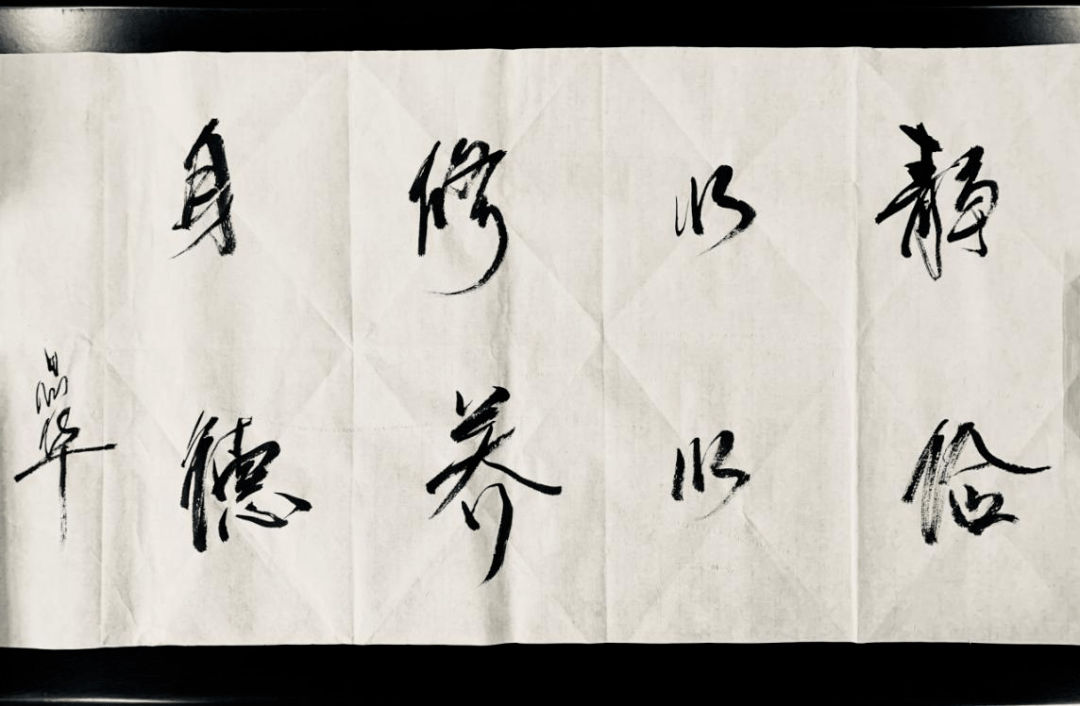 静以修身
俭以养德
晶华